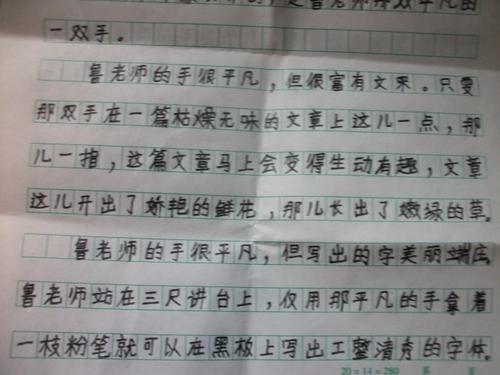 是鲁老师那双平凡的
一双手。
鲁老师的手很平凡，但很富有文采。只要
那双手在一篇枯燥无味的文章上这儿一点，那
儿一指，这篇文章马上会变得生动有趣，文章
这儿开出了娇艳的鲜花，那儿长出了嫩绿的草。
鲁老师的手很平凡，但写出的字美丽端庄。
鲁老师站在三尺讲台上，仅用那平凡的手拿着
一枝粉笔就可以在黑板上写出工整清秀的字体。
20×14=280